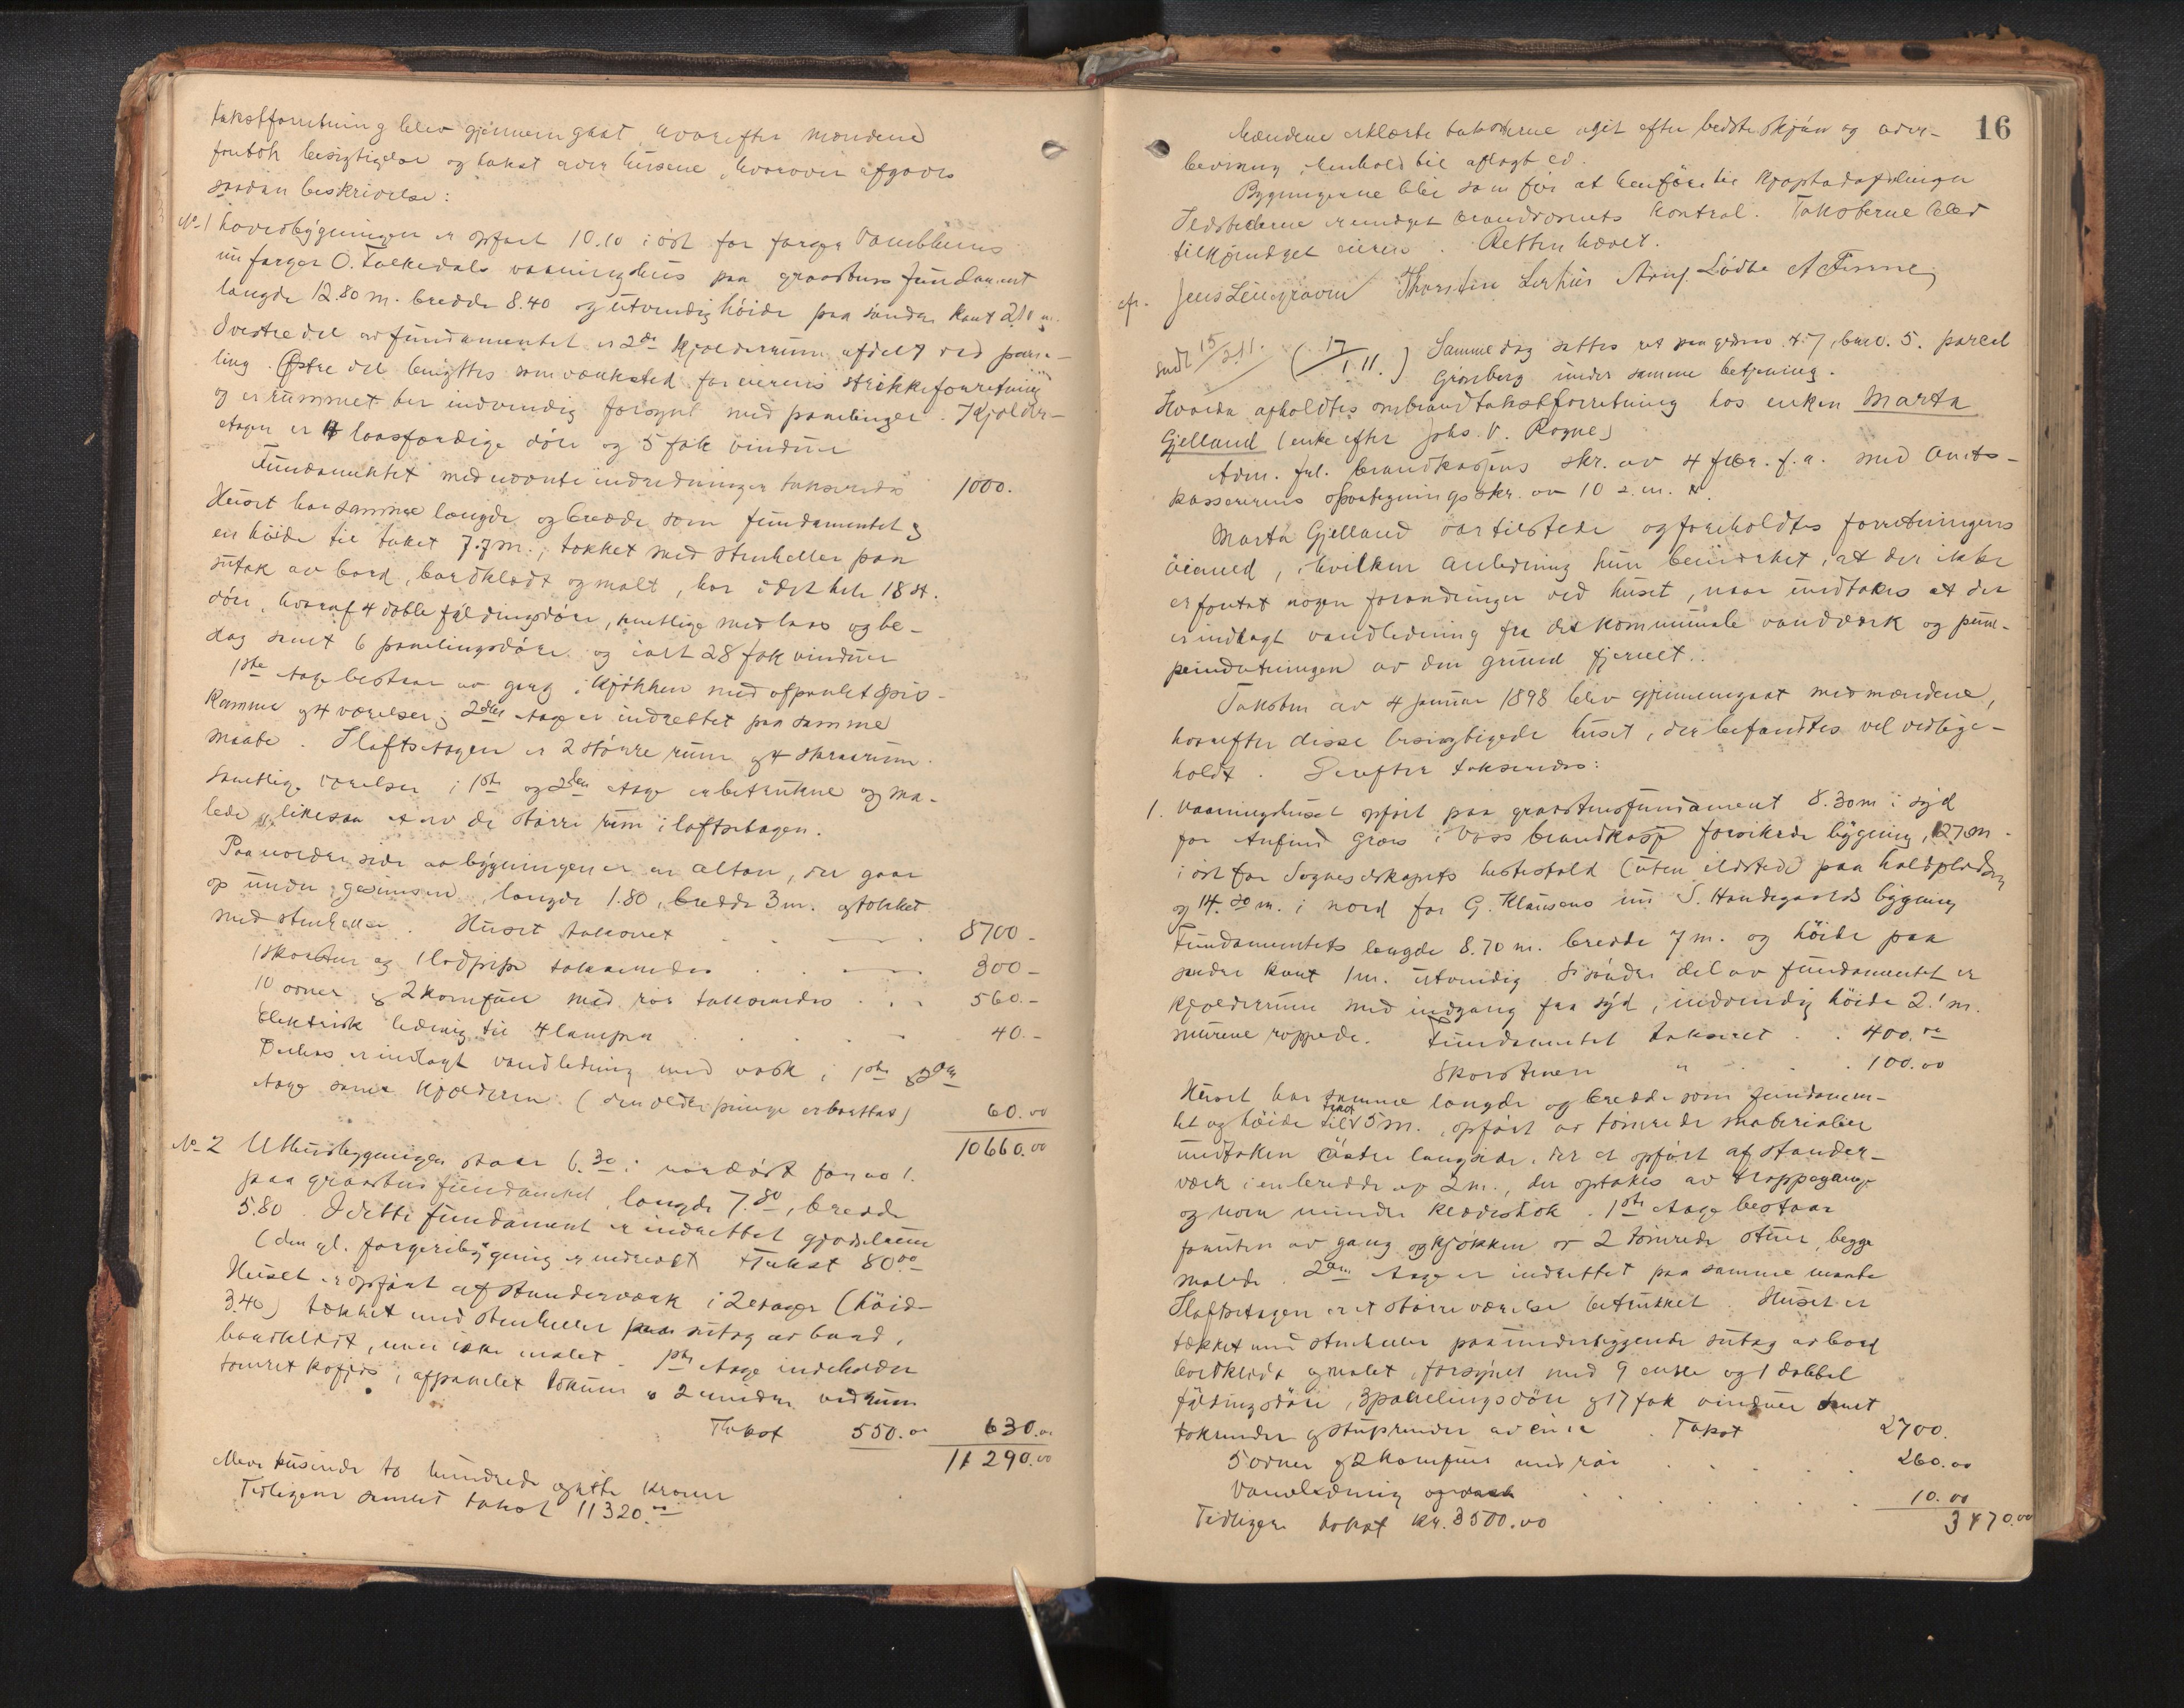 takstforretning blev gjennemgaat hvorefter mændene
foretok besigtigelse og takst over husene, hvorover afgaves
saadan beskrivelse:
No 1 Hovedbygningen er opført 10.10 i øst for farger Vambheims
nu farger O. Tolkedals vaaningshus paa graastens fundament
længde 12.80 m. bredde 8.40 og utvendig høide paa søndre kant 2.10 m.
I vestre del av fundamentet er 2de kjelderrum afdelt ved pane-
ling. Østre del benyttes som verksted for eierens strikkeforretning
og er rummet her indvendig forsynt med panelinger. I kjelder-
etagen er 4 laasfærdige døre og 5 fak vinduer
Fundamentet med nævnte indredninger takseredes 1000.
Huset har samme længde og bredde som fundamentet og
en høide til taket 7.7 m., tækket med stenheller paa
sutak av bord, bordklædt og malt, har i det hele 18 st.
døre, hvoraf 4 doble fyldingsdøre, samtlige med laas og be-
slag samt 6 panelingsdøre og ialt 28 fak vinduer
1ste etage bestaar av gang, kjøkken med afpanlet spis-
kammer og 4 værelser; 2den etage er indrettet paa samme
maate. I loftsetagen er 2 større rum og 4 skraarum.
Samtlige værelser i 1ste og 2den etage er betrukne og ma-
lede, likesaa et av de større rum i loftsetagen.
Paa nordre side av bygningen er en altan, der gaar
op under gesimsen, længde 1.80, bredde 3 m. og tækket
med stenheller. Huset taksert 8700 -
1 skorsten og 1 lodpipe takseredes 300 -
10 ovner og 2 komfurer med rør takseredes 560 -
Elektrisk ledning til 4 lamper 40. -
Derhos er indlagt vandledning med vask i 1ste og 2den
etage samt kjelderen. (den ældre pumpe er borttat) 60.00
10660.00
No 2 Uthusbygningen staar 6.30 i nordøst for no 1.
paa graastensfundament, længde 7.80, bredde
5.80. I dette fundament er indrettet gjødselrum
(den gl. fargeribygning er nedrevet) Takst 80.00
Huset er opført af standerværk i 2 etager (høide
3.40) tækket med stenheller paa sutag av bord,
bordklædt, men ikke malet. 1ste etage indeholder
tømret kofjøs, afpanlet rum og 2 mindre vedrum
Takst 550.00 630.00
11290.00
Elleve tusinde to hundrede og nitti kroner
Tidligere samlet takst 11320.00
16
Mændene erklærte taksterne avgit efter bedste skjøn og over-
bevisning i henhold til aflagt ed.
Bygningerne blir som før at henføre til kjøpstadafdelingen
Ildstederne er undgaet brandvæsnets kontrol. Taksterne blev
tilkjendegit eieren. Retten hævet.
Jens Leiegraven Thorstein Lerhus Arnf. Lødve A Finne
sendt 15/2 11. (17/1 11.) Samme dag sattes ret paa gdsno 47, brno. 5. parcel
Grønberg under samme betjening.
Hvorda afholdtes ombrandtakstforretning hos enken Marta
Gjelland (enke efter Johs. V. Rogne)
Adm. frl. brandkassens skr. av 4 febr. f.a. med Amts-
kassererens paategningsskr. av 10 s.m.
Marta Gjelland var tilstede og foreholdtes forretningens
øiemed, i hvilken anledning hun bemerket, at der ikke
er foretat nogen forandringer ved huset, naar undtakes at der
er indlagt vandledning fra det kommunale vandværk og pum-
peindretningen av den grund fjernet.
Taksten av 4 januar 1898 blev gjennemgaat med mændene,
hvorefter disse besigtigede huset, der befandtes vel vedlige-
holdt. Derefter takseredes:
1. Vaaningshuset opført paa graastensfundament 8.30 m i syd
for Anfind Græs i Voss brandkasse forsikrede bygning, 12.70 m
i øst for Sogneselskapets hestestald (uten ildsted) paa holdpladsen
og 14.20 m. i nord for G. Klausens nu S. Handegaards bygning
Fundamentets længde 8.70 m. bredde 7 m. og høide paa
søndre kant 1 m. utvendig. I søndre del av fundamentet er
kjelderrum med indgang fra syd, indvendig høide 2.1 m.
murene rappede. Fundamentet taksert 400.00
Skorstenen " 100.00
Huset har samme længde og bredde som fundamen-
tet og høide til taket 5 m., opført av tømrede materialier
undtaken østre langside, der er opført af stander-
værk i en bredde av 2 m., der optakes av trappegange
og noen mindre klædeskot. 1ste etage bestaar
foruten av gang og kjøkken av 2 tømrede stuer, begge
malede. 2den etage er indrettet paa samme maate
I loftsetagen er et større værelse betrukket. Huset er
tækket med stenheller paa underliggende sutag av bord
bordklædt og malet, forsynet med 9 enkle og 1 dobbel
fyldingsdøre, 3 panelingsdøre og 17 fak vinduer samt
takrender og stuprender av sink. Takst 2700.
5 ovner og 2 komfurer med rør 260.00
Vandledning og vask 10.00
Tidligere takst kr. 3500.00 3470.00